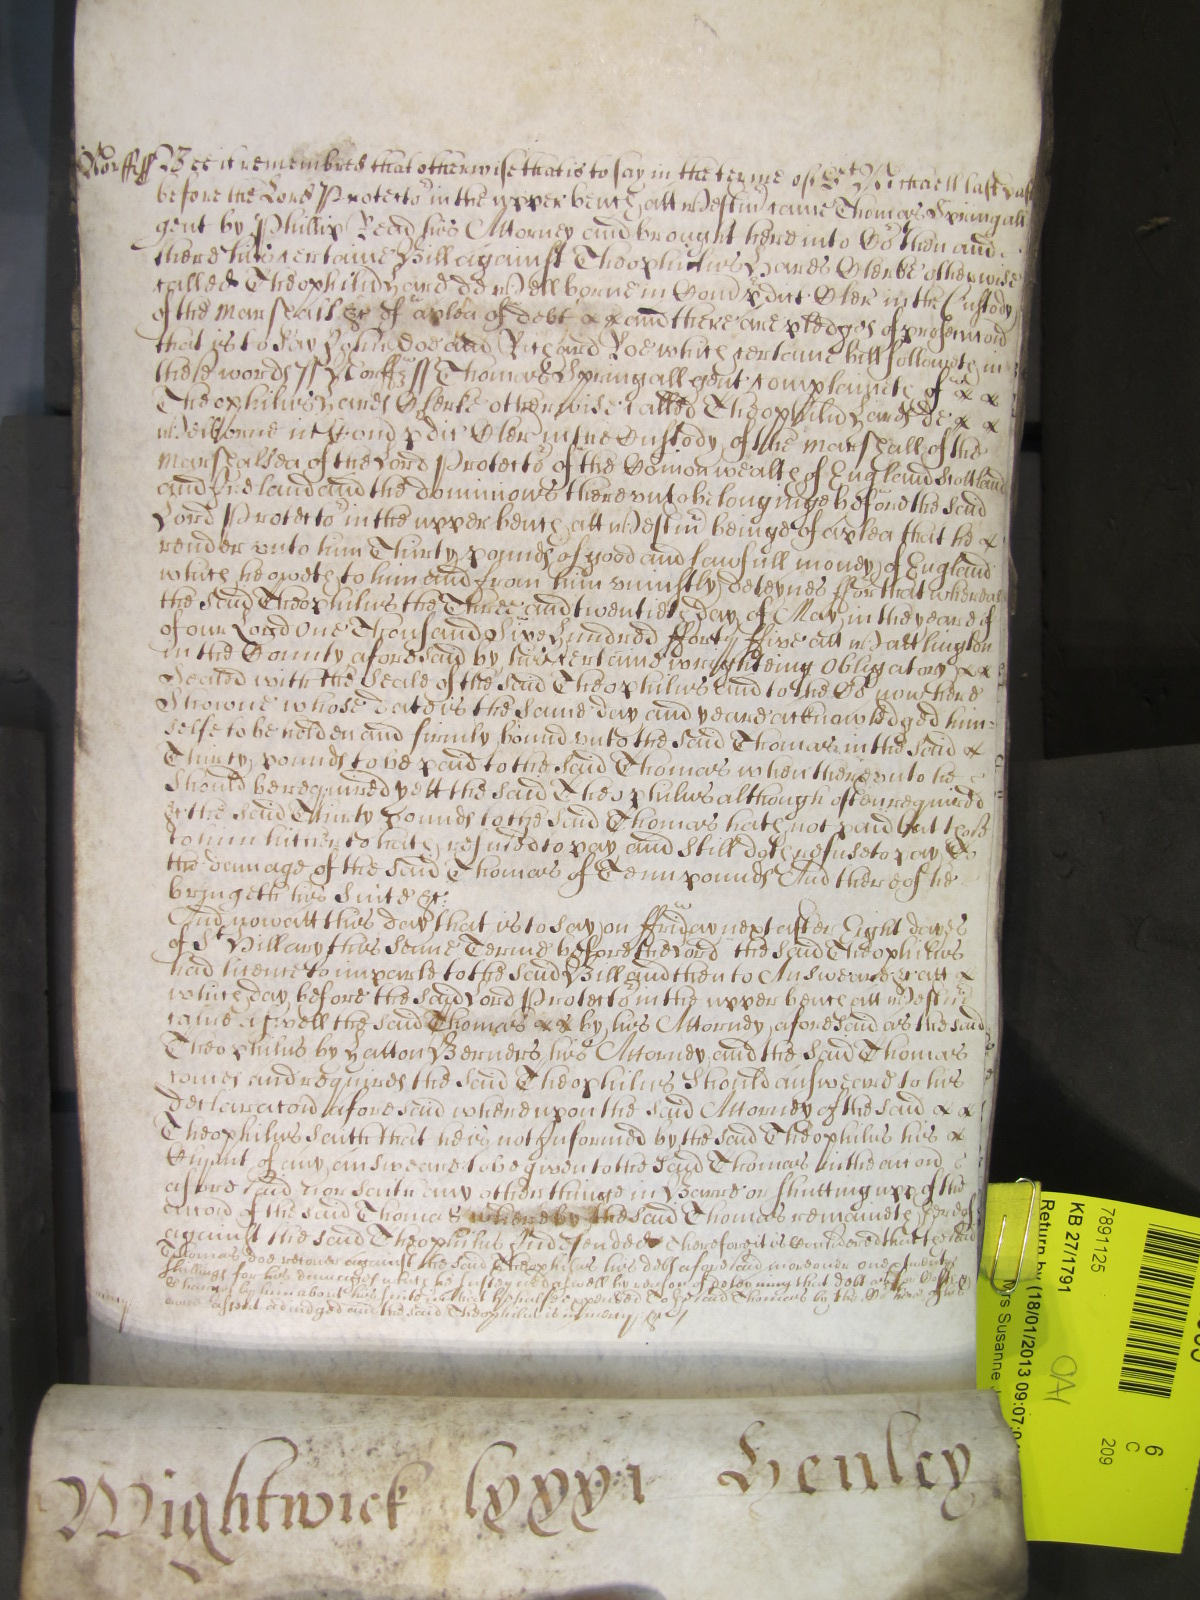 Norff ss Bee it remembred that otherwise that is to say in the terme of St Michaell last past
before the Lord Protector in the upper bench att Westmr came Thomas Springall
gent by Phillip Read his Attorney and brought here into Co then and
there his certaine Bill against Theophilus Hares Clerke otherwise
called Theophilu Hares de Wellborne in Com pdict Cler in the Custody
of the Marshall &c of a plea of debt x x and there are pledges of prosecucon
that is to say John Doe and Richard Roe which certaine bill followeth in
these words ss Norff ss Thomas Springall gent complaineth of x x
Theophilus Hares Clerke otherwise called Theophilu Hares de x x
Welborne in Com pdic Cler in the Custody of the Marshall of the
Marshalsea of the Lord Protector of the Comonwealth of England Scottland
and Ireland and the dominions thereunto belonginge before the said
Lord Protector in the upper bench att Westmr beinge of a plea that he x
render unto him Thirty pounds of good and lawfull money of England
which he oweth to him and from him uniustly deteynes ffor that whereas
the said Theophilus the Three and twentieth day of May in the yeare
of our Lord One Thousand Sixe Hundred fforty ffive att
in the County aforesaid by his certaine wrighteing Obligatory x x
Sealed with the Seale of the said Theophilus and to the Co now here
Showne whose date is the same day and yeare acknowledged him=
selfe to be holden and firmly bound unto the said Thomas in the said x
Thirty pounds to be paid to the said Thomas when thereunto he
should be required yett the said Theophilus although often required
the said Thirty pounds to the said Thomas hath not paid but
to him hitherto hath refused to pay and still doth refuse to pay to
the damage of the said Thomas of Tenn pounds And thereof he
bringeth his Suite &c:
And now att this day that is to say on ffriday next after Eight dayes
of St Hillary this same Terme before the Lord the said Theophilus
had licence to imparle to the said Bill and then to Answeare &c att x
which day before the said Lord Protector in the upper bench att Westmr
came aswell the said Thomas x x by his Attorney aforesaid as the said
Theophilus by Hatton Berners his Attorney and the said Thomas
comes and requires the said Theophilus should answeare to his
declaracon aforesaid whereupon the said Attorney of the said x x
Theophilus saith that he is not Informed by the said Theophilus his x
Clyant of any answeare to be given to the said Thomas in the accon
aforesaid nor saith any other thinge in Barre or shutting upp of the
accon of the said Thomas whereby the said Thomas remaineth
against the said Theophilus Undefended Therefore it is Considered that the said
Thomas doe recover against the said Theophilus his debt aforesaid and moreover one and twenty
shillings for his damages which he susteyned aswell by reason of deteyning that debt as for
Charges by him about his suite in that behalfe expended to the said Thomas by the Co here of his
assent adiudged and the said Theophilus in mercy &c
Wightwick lxxxi Henley
7891125
KB 27/1791
Return by (18/01/2013 09:07:0
Mrs Susanne
CA1
6
C
209